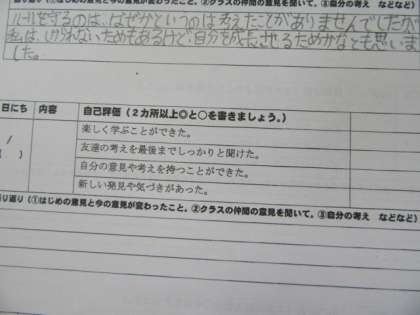 り返り (①はじめの意見と今の意見が変わったこと, ②クラスの仲間の意見を聞いて, ③自分の考え などなど)
ルールを守るのは、なぜかというのは考えたことがありませんでしたが
私は、しかられないためもあるけど、自分を成長させるためかなとも思いま
した。
日にち 内容 自己評価 (2カ所以上◎と○を書きましょう。)
楽しく学ぶことができた。
/ 友達の考えを最後までしっかりと聞けた。
( ) 自分の意見や考えを持つことができた。
新しい発見や気づきがあった。
り返り (①はじめの意見と今の意見が変わったこと, ②クラスの仲間の意見を聞いて, ③自分の考え などなど)